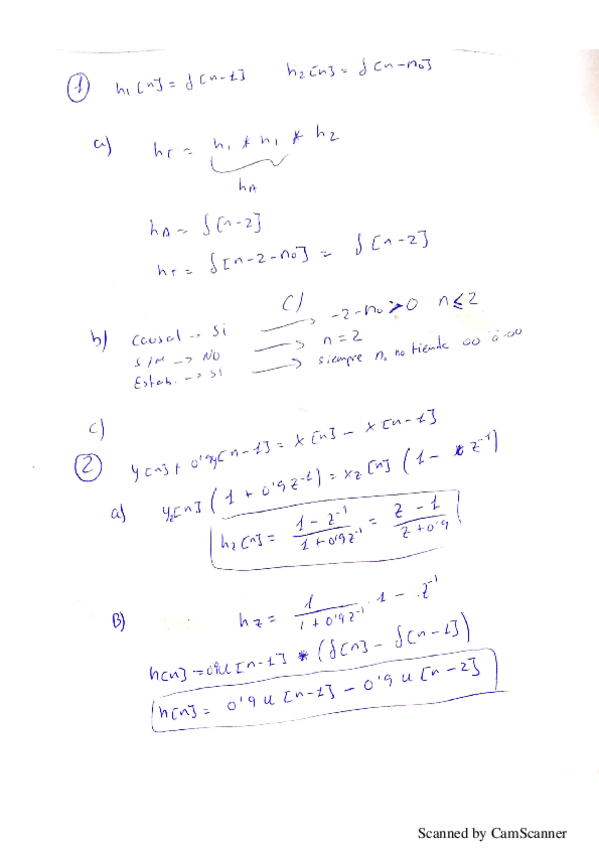 ① h₁[n] = δ[n-1] h₂[n] = δ[n-n₀]
a) h_T = h₁ * h₁ * h₂
h_A
h_A = δ[n-2]
h_T = δ[n-2-n₀] = δ[n-2]
c)
b) Causal → Si → -2-n₀ > 0 n ≤ 2
Sim → NO → n = 2
Estab. → Si → siempre n₀ no tiende ∞ ó -∞
c)
② y[n] + 0'9y[n-1] = x[n] - x[n-1]
a) y_z[n] (1 + 0'9z⁻¹) = x_z[n] (1 - z⁻¹)
h_z[n] = (1 - z⁻¹)/(1 + 0'9z⁻¹) = (z - 1)/(z + 0'9)
B) h_z = 1/(1 + 0'9z⁻¹) · 1 - z⁻¹
h[n] = 0'9u[n-1] * (δ[n] - δ[n-1])
h[n] = 0'9 u[n-1] - 0'9 u[n-2]
Scanned by CamScanner